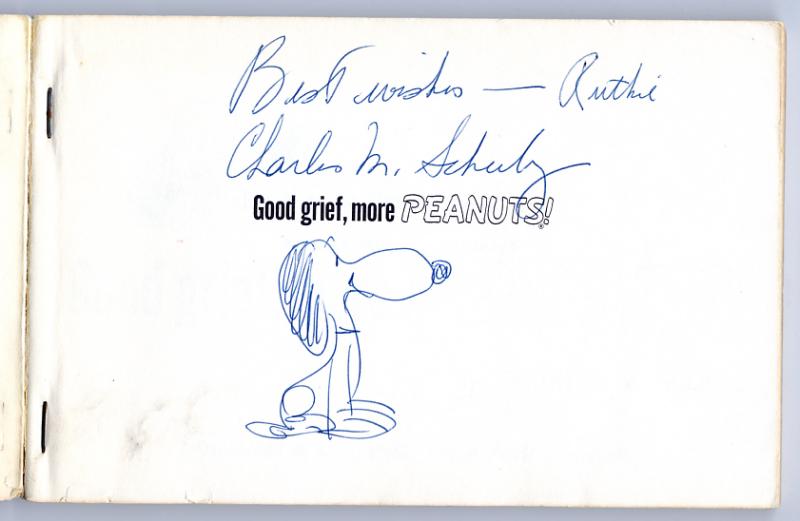 Best wishes — Ruthie
Charles M. Schulz
Good grief, more PEANUTS!